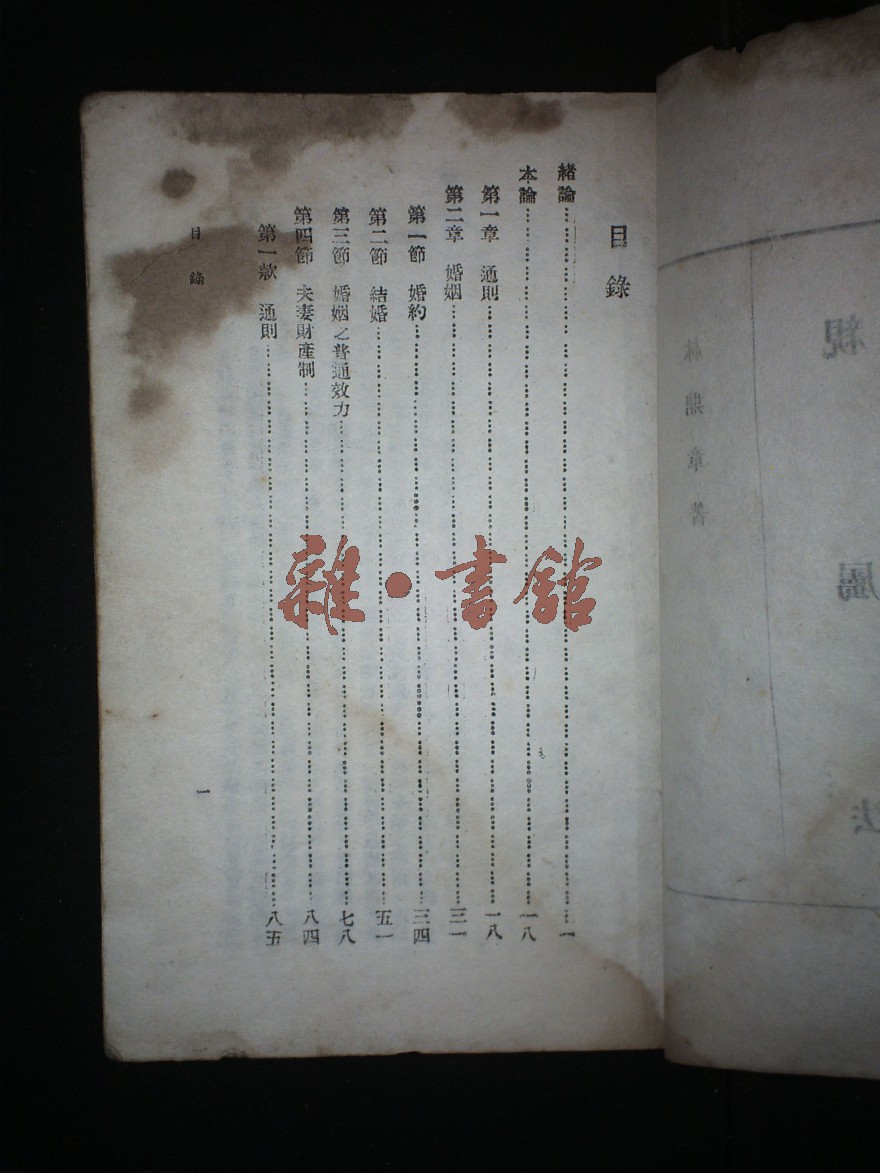 親屬法
林鼎章著
目錄
緒論……一
本論……一八
第一章 通則……一八
第二章 婚姻……三一
第一節 婚約……三四
第二節 結婚……五一
第三節 婚姻之普通效力……七八
第四節 夫妻財產制……八四
第一款 通則……八五
目錄
一
雜·書館